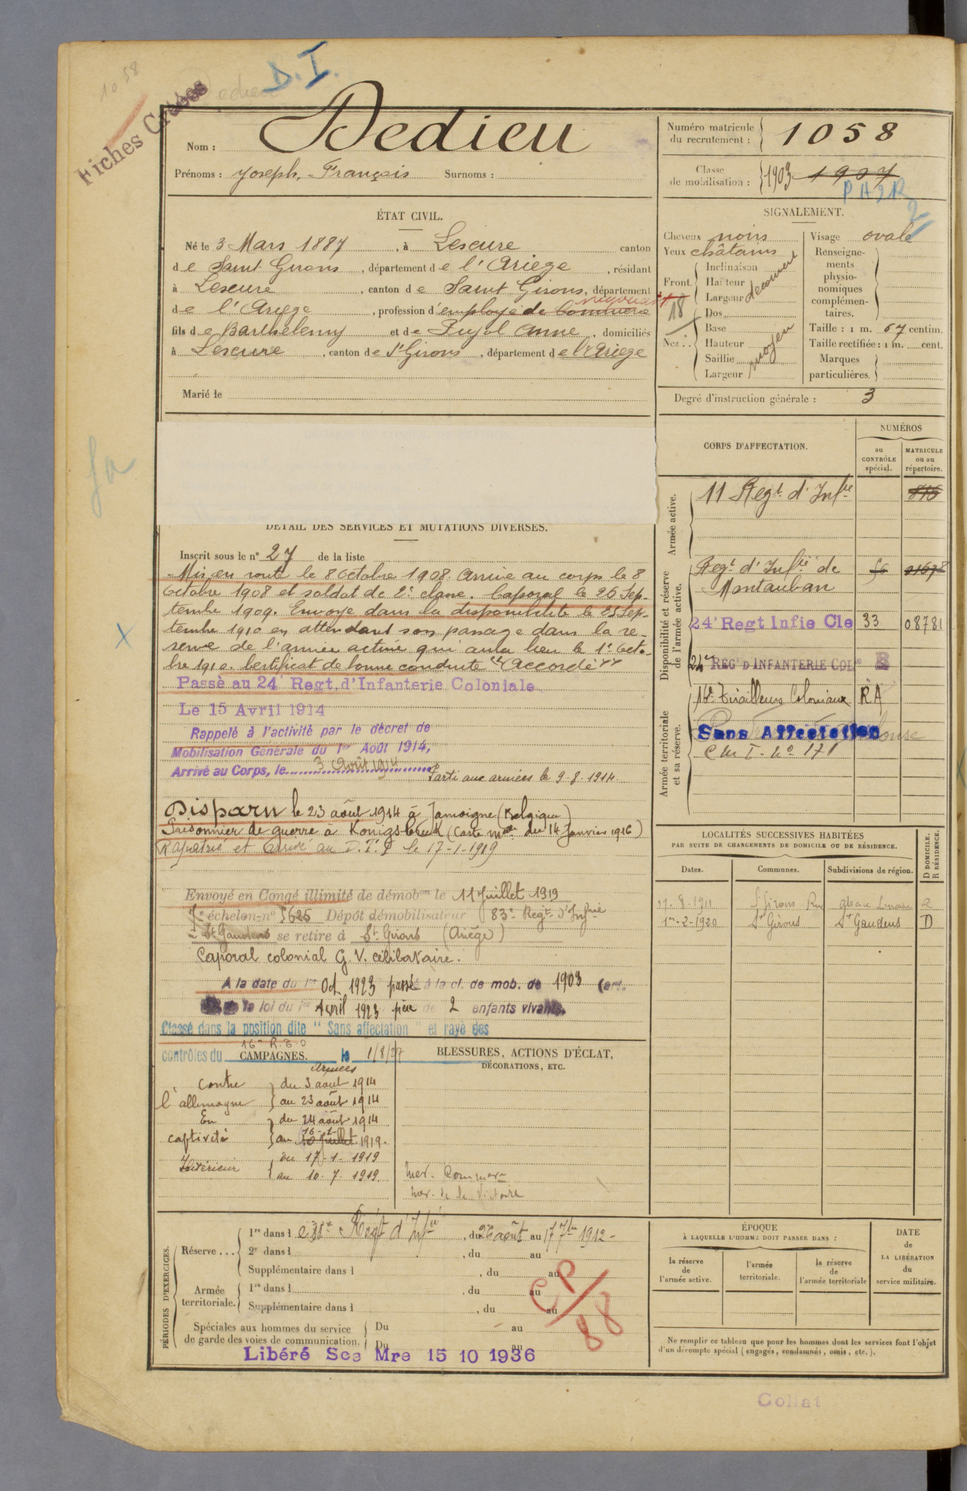 1058
D. I.
Fiches Croisées
Nom : Dedieu
Prénoms : Joseph, François Surnoms :
Numéro matricule du recrutement : 1058
Classe de mobilisation : 1903 1907
ÉTAT CIVIL.
Né le 3 Mars 1887, à Lescure canton
de Saint Girons, département de l'Ariège, résidant
à Lescure, canton de Saint Girons, département
de l'Ariège, profession d'employé de commerce négociant
fils de Barthélemy et de Pujol Anne, domiciliés
à Lescure, canton de St Girons, département de l'Ariège
Marié le
SIGNALEMENT.
Cheveux noirs
Yeux châtains
Front
Inclinaison
Hauteur
Largeur
découvert
18
Nez
Dos
Base
Hauteur
Saillie
Largeur
moyen
Visage ovale
Renseigne-
ments
physio-
nomiques
complémen-
taires.
Taille : 1 m. 67 centim.
Taille rectifiée : 1 m. cent.
Marques
particulières.
Degré d'instruction générale : 3
CORPS D'AFFECTATION.
NUMÉROS
au CONTRÔLE spécial.
MATRICULE ou au répertoire.
Armée active.
11 Regt d'Infie 816
Disponibilité et réserve de l'armée active.
Regt d'Infie de
Montauban
24e Regt Infie Cle 33 08781
24me REGt D'INFANTERIE COLe
Armée territoriale et sa réserve.
16e Tirailleurs Coloniaux RA
Sans Affectation
DÉTAIL DES SERVICES ET MUTATIONS DIVERSES.
Inscrit sous le n° 27 de la liste
Mis en route le 8 octobre 1908. Arrivé au corps le 8
octobre 1908 et soldat de 2e classe. Caporal le 25 Sep-
tembre 1909. Envoyé dans la disponibilité le 25 Sep-
tembre 1910 en attendant son passage dans la ré-
serve de l'armée active qui aura lieu le 1er Octo-
bre 1910. Certificat de bonne conduite "Accordé"
Passé au 24e Regt. d'Infanterie Coloniale
Le 15 Avril 1914
Rappelé à l'activité par le décret de
Mobilisation Générale du 1er Août 1914,
Arrivé au Corps, le 3 Août 1914 Parti aux armées le 9-8-1914
Disparu le 23 août 1914 à Jamoigne (Belgique)
Prisonnier de guerre à Königsbrück (Carte mle du 14 Janvier 1916)
Rapatrié et arrivé au le 17-1-1919
Envoyé en Congé illimité de démobon le 11 Juillet 1919
échelon n° 5626 Dépôt démobilisateur 83e Regt d'Infrie
St Gaudens se retire à St Girons (Ariège)
Caporal colonial G. V. célibataire.
A la date du 1er Oct 1923 passé à la cl. de mob. de 1903 (art.
de la loi du 1er Avril 1923 père de 2 enfants vivants.
Classé dans la position dite " Sans affectation " et rayé des
contrôles du le 1/8/27
CAMPAGNES.
Armées
Contre l'allemagne du 3 août 1914
au 23 août 1914
En captivité du 24 août 1914
au 16-1-1919.
Intérieur du 17-1-1919
au 10.7.1919.
BLESSURES, ACTIONS D'ÉCLAT,
DÉCORATIONS, ETC.
Med. Commve
Med. de la Victoire
LOCALITÉS SUCCESSIVES HABITÉES
PAR SUITE DE CHANGEMENTS DE DOMICILE OU DE RÉSIDENCE.
Dates. Communes. Subdivisions de région. D DOMICILE. R RÉSIDENCE.
1er-2-1920 St Girons St Gaudens D
PÉRIODES D'EXERCICES.
Réserve . . .
1re dans le Régt d'Infie, du 26 août au 17 7bre 1912
2e dans l , du au
Supplémentaire dans l , du au
Armée territoriale.
1re dans l , du au
Supplémentaire dans l , du au
Spéciales aux hommes du service
de garde des voies de communication.
Du au
Du au
CP/88
Libéré Sce Mre 15 10 1936
ÉPOQUE
À LAQUELLE L'HOMME DOIT PASSER DANS :
la réserve de l'armée active.
l'armée territoriale.
la réserve de l'armée territoriale
DATE
de
LA LIBÉRATION
du
service militaire.
Ne remplir ce tableau que pour les hommes dont les services font l'objet
d'un décompte spécial (engagés, condamnés, omis, etc.).
Collat